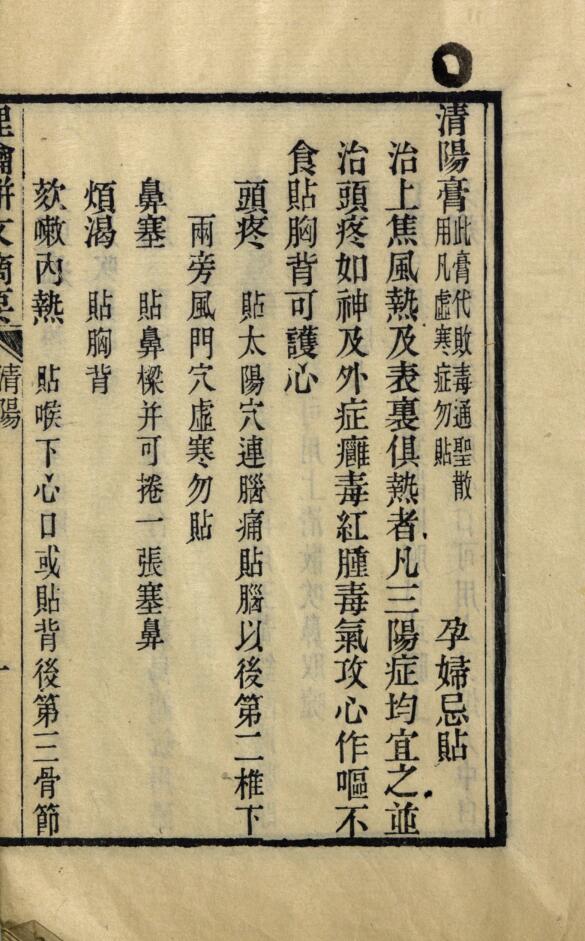 清陽膏 此膏代敗毒通聖散用凡虛寒症勿貼 孕婦忌貼
治上焦風熱及表裏俱熱者凡三陽症均宜之並
治頭疼如神及外症癰毒紅腫毒氣攻心作嘔不
食貼胸背可護心
頭疼 貼太陽穴連腦痛貼腦以後第二椎下
兩旁風門穴虛寒勿貼
鼻塞 貼鼻樑并可捲一張塞鼻
煩渴 貼胸背
欬嗽內熱 貼喉下心口或貼背後第三骨節
清陽